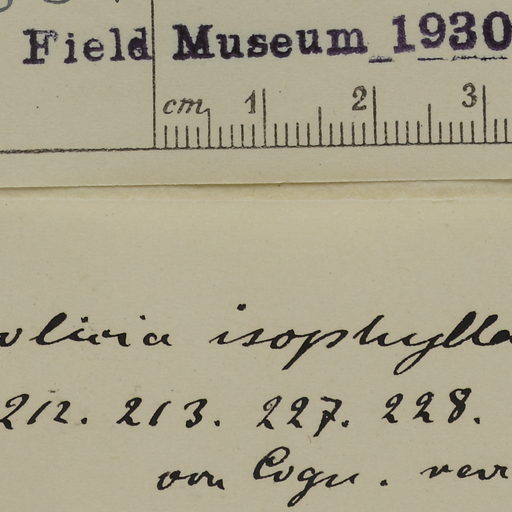 Field Museum 1930
cm 1 2 3
isophylla
212. 213. 227. 228.
von Cogn.